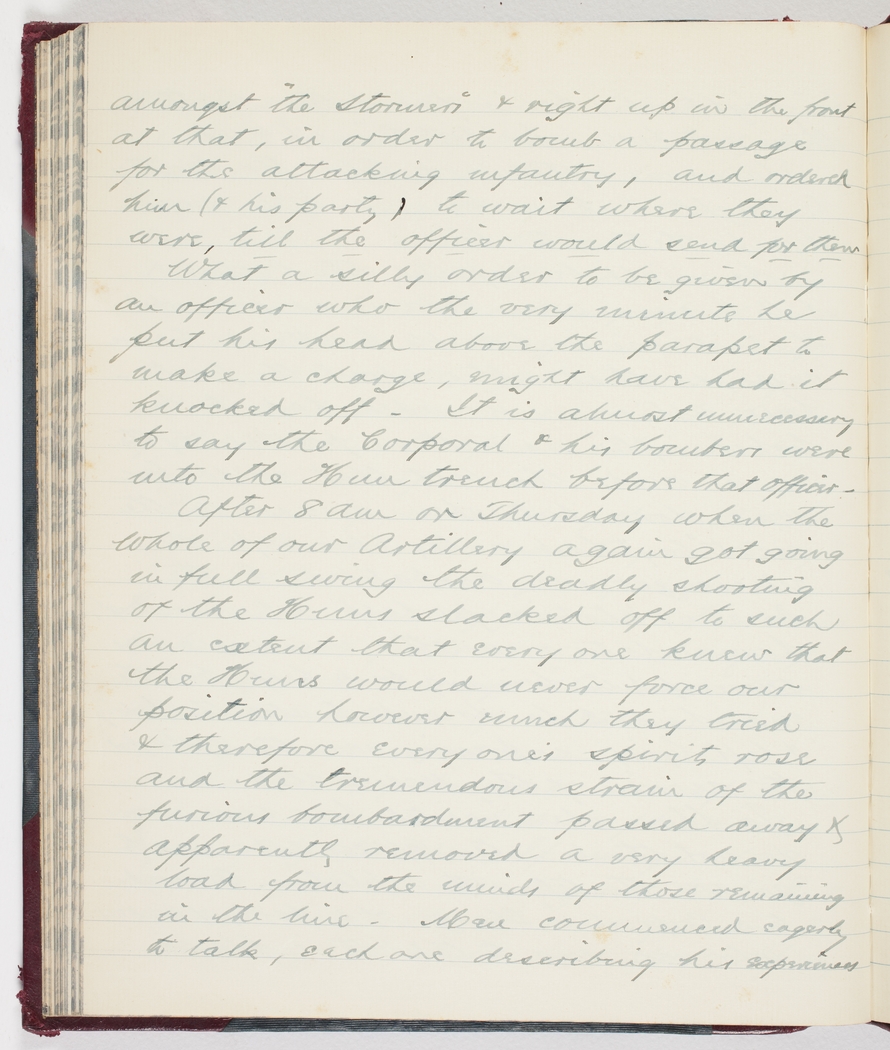 amongst "the Stormers" & right up in the front
at that, in order to bomb a passage
for the attacking infantry, and ordered
him (& his party) to wait where they
were, till the officer would send for them
What a silly order to be given by
an officer who the very minute he
put his head above the parapet to
make a charge, might have had it
knocked off - It is almost unnecessary
to say the Corporal & his bombers were
into the Hun trench before that officer -
After 8 am on Thursday when the
whole of our Artillery again got going
in full swing the deadly shooting
of the Huns slacked off to such
an extent that every one knew that
the Huns would never force our
position however much they tried
& therefore every one's spirits rose
and the tremendous strain of the
furious bombardment passed away &
apparently removed a very heavy
load from the minds of those remaining
in the line - Men commenced eagerly
to talk, each one describing his experiences